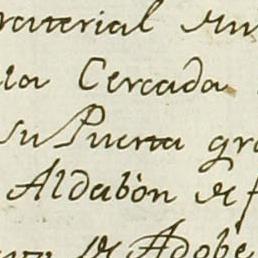 material
la Cercada
su Puerta gra
Aldabòn de f
de Adobe